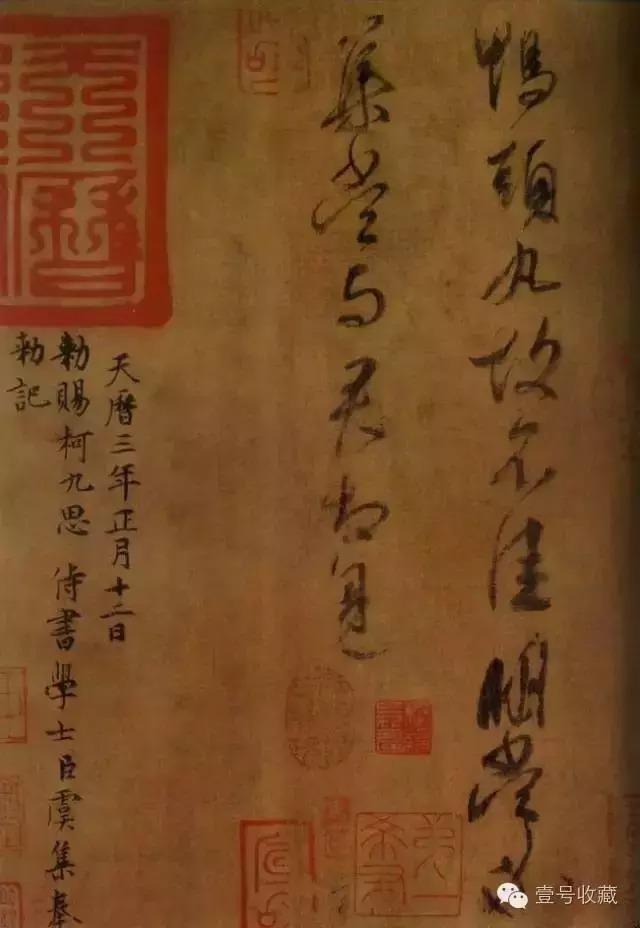 鴨頭丸故不佳明當必
集當與君相見
天曆三年正月十二日
勑賜柯九思 侍書學士臣虞集奉
勑記
壹号收藏